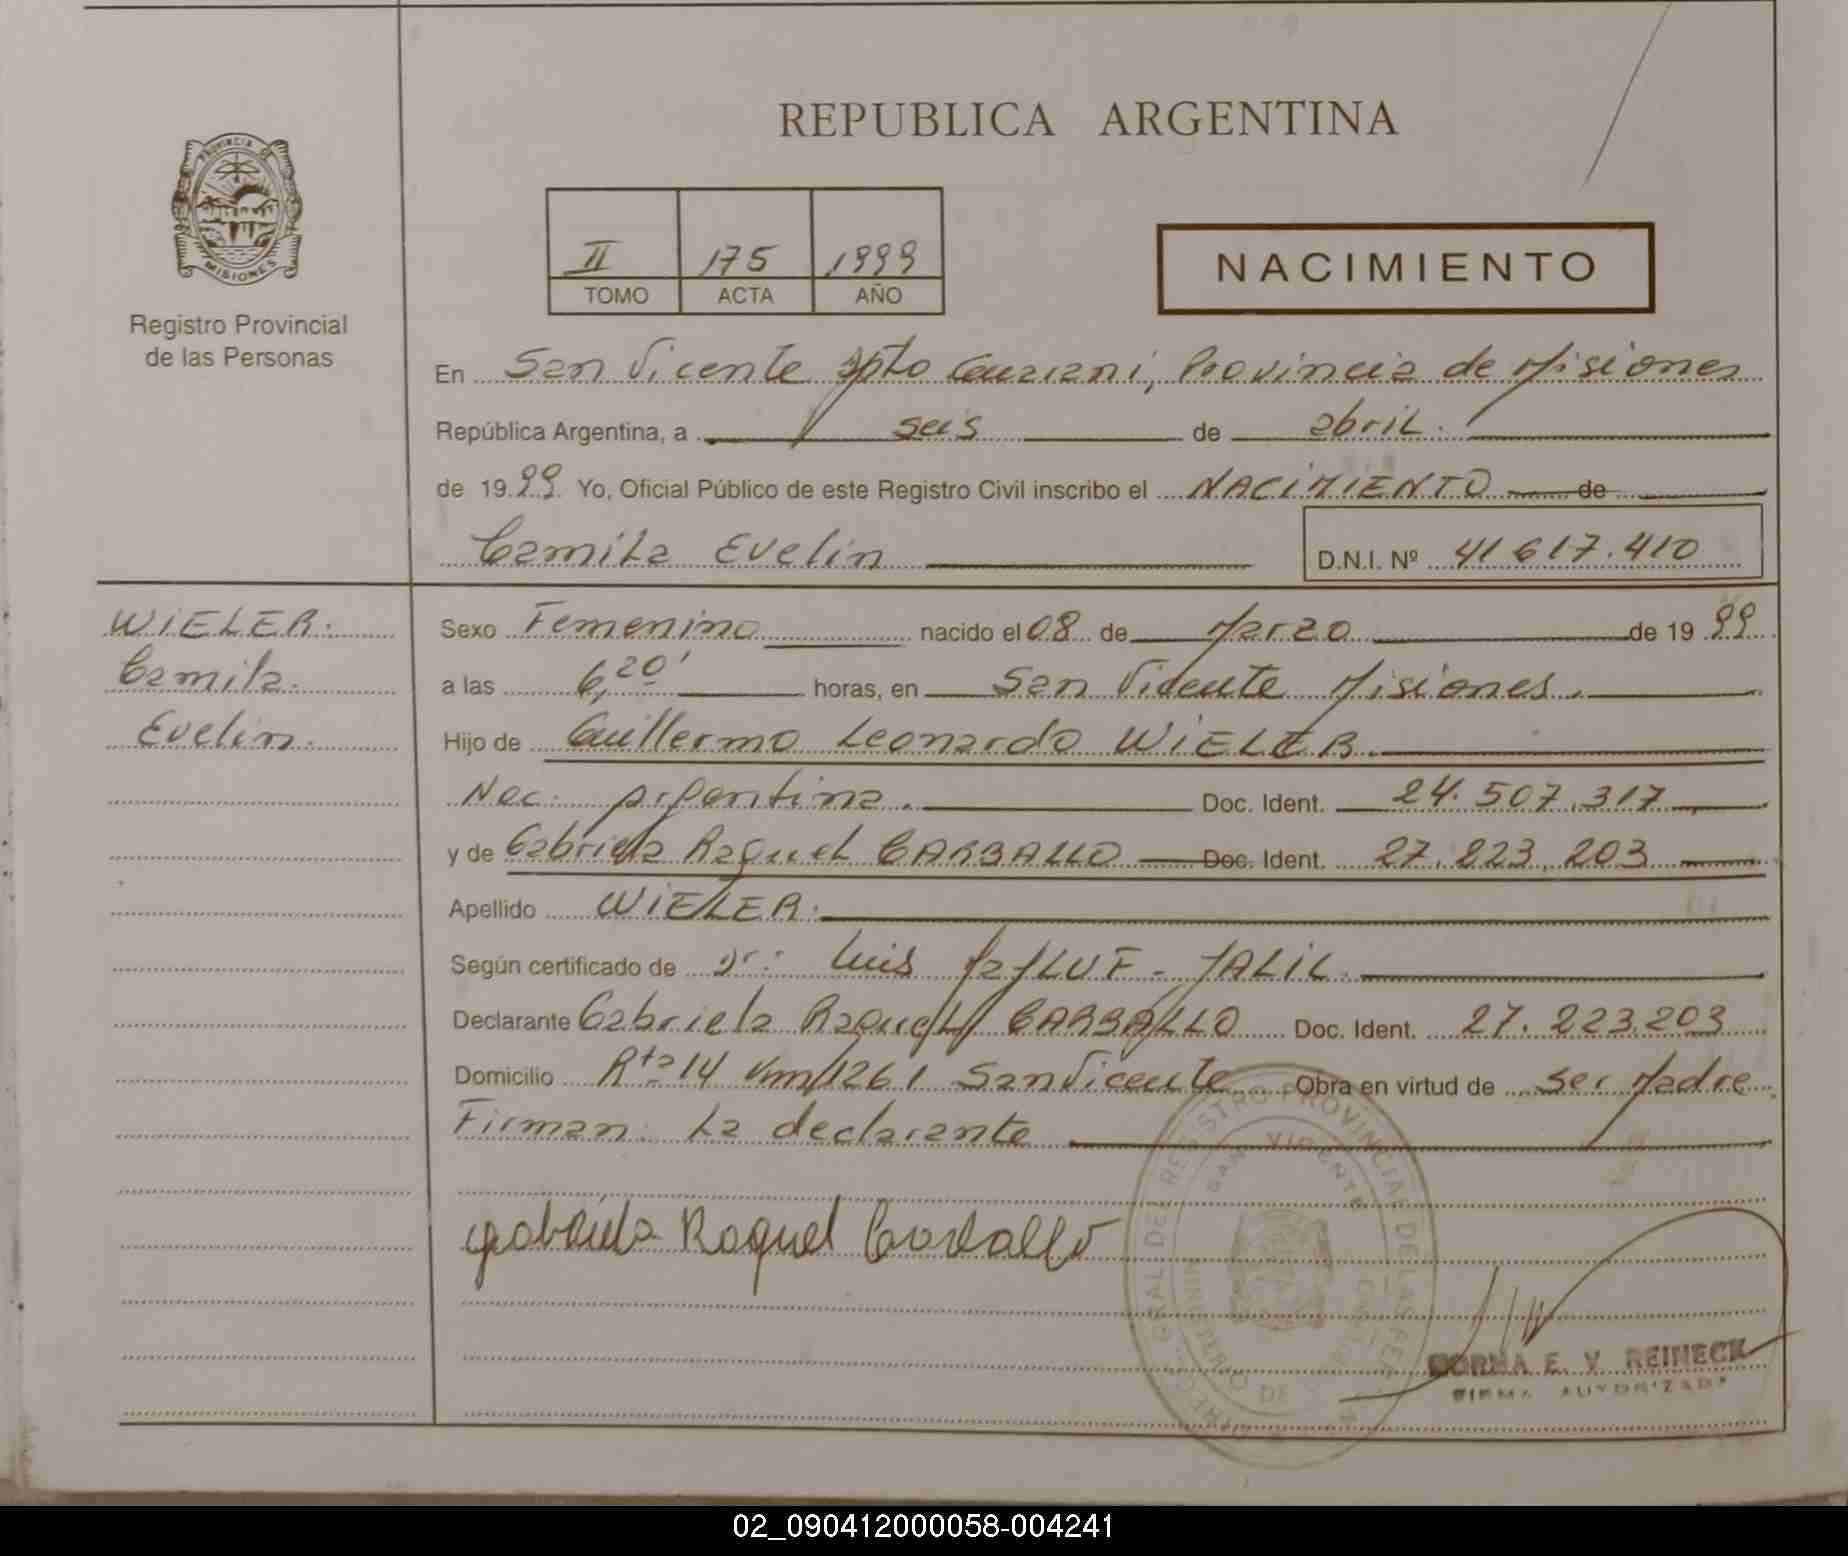 REPUBLICA ARGENTINA
PROVINCIA DE
MISIONES
Registro Provincial
de las Personas
II 175 1999
TOMO ACTA AÑO
NACIMIENTO
En San Vicente Dpto Guarani, Provincia de Misiones
República Argentina, a seis de abril.
de 1999 Yo, Oficial Público de este Registro Civil inscribo el NACIMIENTO de
Camila Evelin D.N.I. Nº 41617.410
WIELER.
Camila.
Evelin.
Sexo Femenino nacido el 08 de Marzo de 1999
a las 6,20' horas, en San Vicente Misiones.
Hijo de Guillermo Leonardo WIELER.
Nac. Argentina. Doc. Ident. 24.507.317
y de Gabriela Raquel CARBALLO Doc. Ident. 27.223.203
Apellido WIELER.
Según certificado de Dr: Luis JALIL.
Declarante Gabriela Raquel CARBALLO Doc. Ident. 27.223.203
Domicilio Rta 14 km 1261 San Vicente Obra en virtud de ser Madre
Firman: La declarante
Gabriela Raquel Carballo
REGISTRO PROVINCIAL DE LAS
SAN VICENTE
NORMA E. V. REINECK
FIRMA AUTORIZADA
02_090412000058-004241